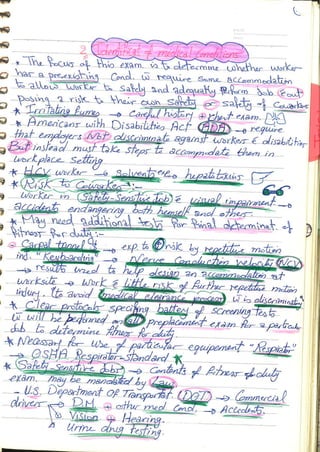 Identificat° of medical conditions
* The focus of this exam is to determine whether worker
has a preexisting Cond. w̄ require some accommodation
to allow worker to safely and adequately perform Job without
posing a risk to their own safety or safety of coworkers
* Irritating fumes → Careful history + chest exam.
* Americans with Disabilities Act (ADA) → require
that employers Not discriminate against workers c̄ disabilities
But instead must take steps to accommodate them in
workplace setting
* HCV worker → solvents or hepatotoxins
* Risk to Coworkers :-
Worker in Safety-Sensitive Job c̄ visual impairment →
accidents endangering both himself and others
- May need additional tests for final determinat. of
fitness for duty :-
- Carpal tunnel → exp. to risk by repetitive motion
ind. "Keyboarding" → Nerve Conduction velocity NCV
→ results used to help design an accommodation at
worksite → work c̄ little risk of further repetitive motion
injury. to avoid medical clearance program w̄ is discriminate
- Clear protocols specifying battery of screening tests
w̄ will be performed at preplacement exam for a particular
Job to determine fitness for duty
* Necessary for use of particular equipement "Respirator"
→ OSHA Respirator Standard
* Safety-sensitive Jobs → Contents of fitness of duty
exam. may be mandated by Law
- U.S. Department of Transportat. DOT → Commercial
drivers → D.M + other med cond. → Accidents.
Vision + Hearing.
Urine drug testing.